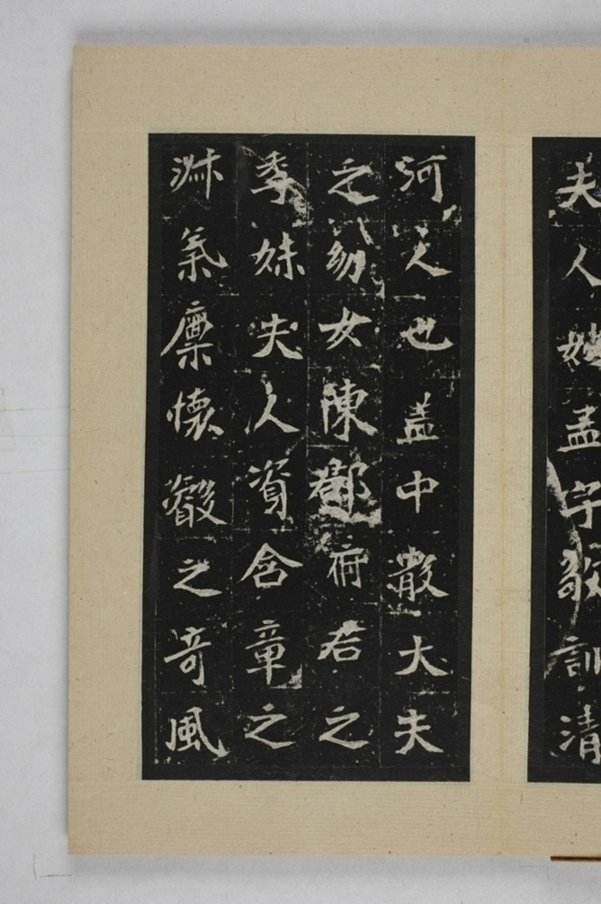 夫人姓孟字敬訓清
河人也蓋中散大夫
之幼女陳郡府君之
季妹夫人資含章之
淑氣稟懷叡之奇風